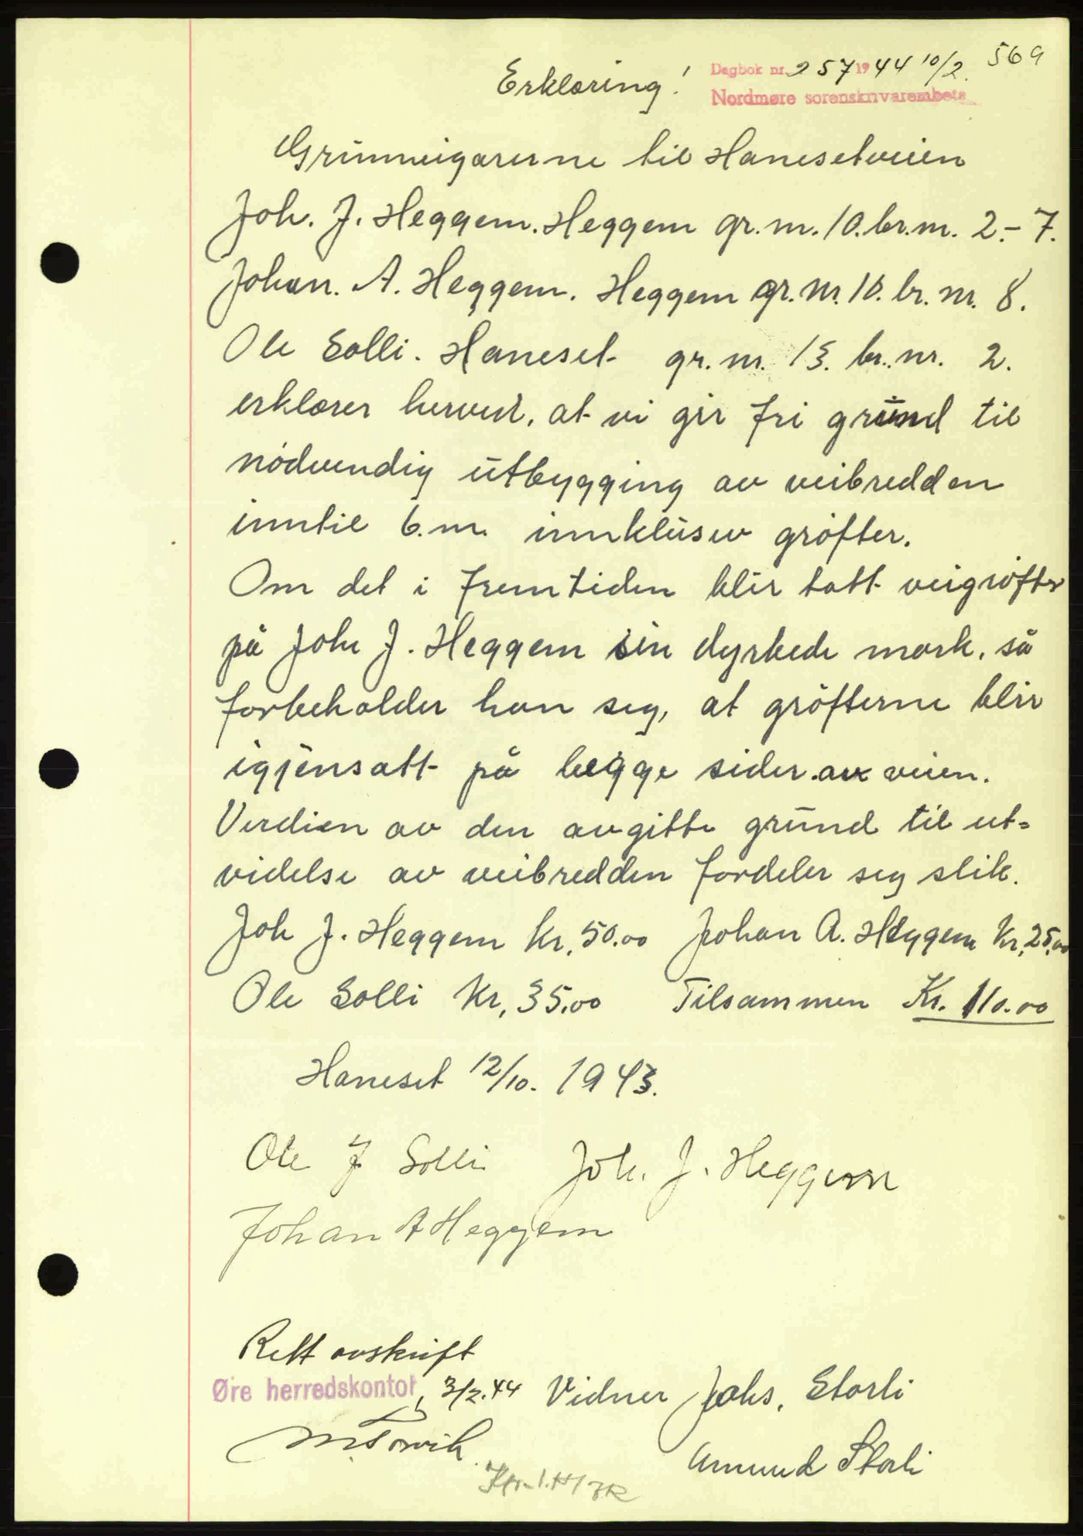 569
Dagbok nr. 257 1944 10/2.
Nordmøre sorenskrivarembete
Erklæring!
Grunneigarerne til Hanesetveien
Joh. J. Heggem. Heggem gr. nr. 10. br. nr. 2.- 7.
Johan. A. Heggem. Heggem gr. nr. 10. br. nr. 8.
Ole Solli. Haneset gr. nr. 13. br. nr. 2.
erklærer herved, at vi gir fri grund til
nödvendig utbygging av veibredden
inntil 6. m. innklusiv gröfter.
Om det i fremtiden blir tatt veigröfter
på Joh J. Heggem sin dyrkede mark, så
forbeholder han seg, at gröfterne blir
igjensatt på begge sider av veien.
Verdien av den avgitte grund til ut=
videlse av veibredden fordeler seg slik.
Joh J. Heggem Kr, 50.00 Johan A. Heggem Kr, 25,00
Ole Solli Kr, 35.00 Tilsammen Kr. 110.00
Haneset 12/10. 1943.
Ole J Solli Joh. J. Heggem
Johan A Heggem
Rett avskrift
Øre herredskontor, 3/2.44 Vidner Johs. Storli
Amund Storli